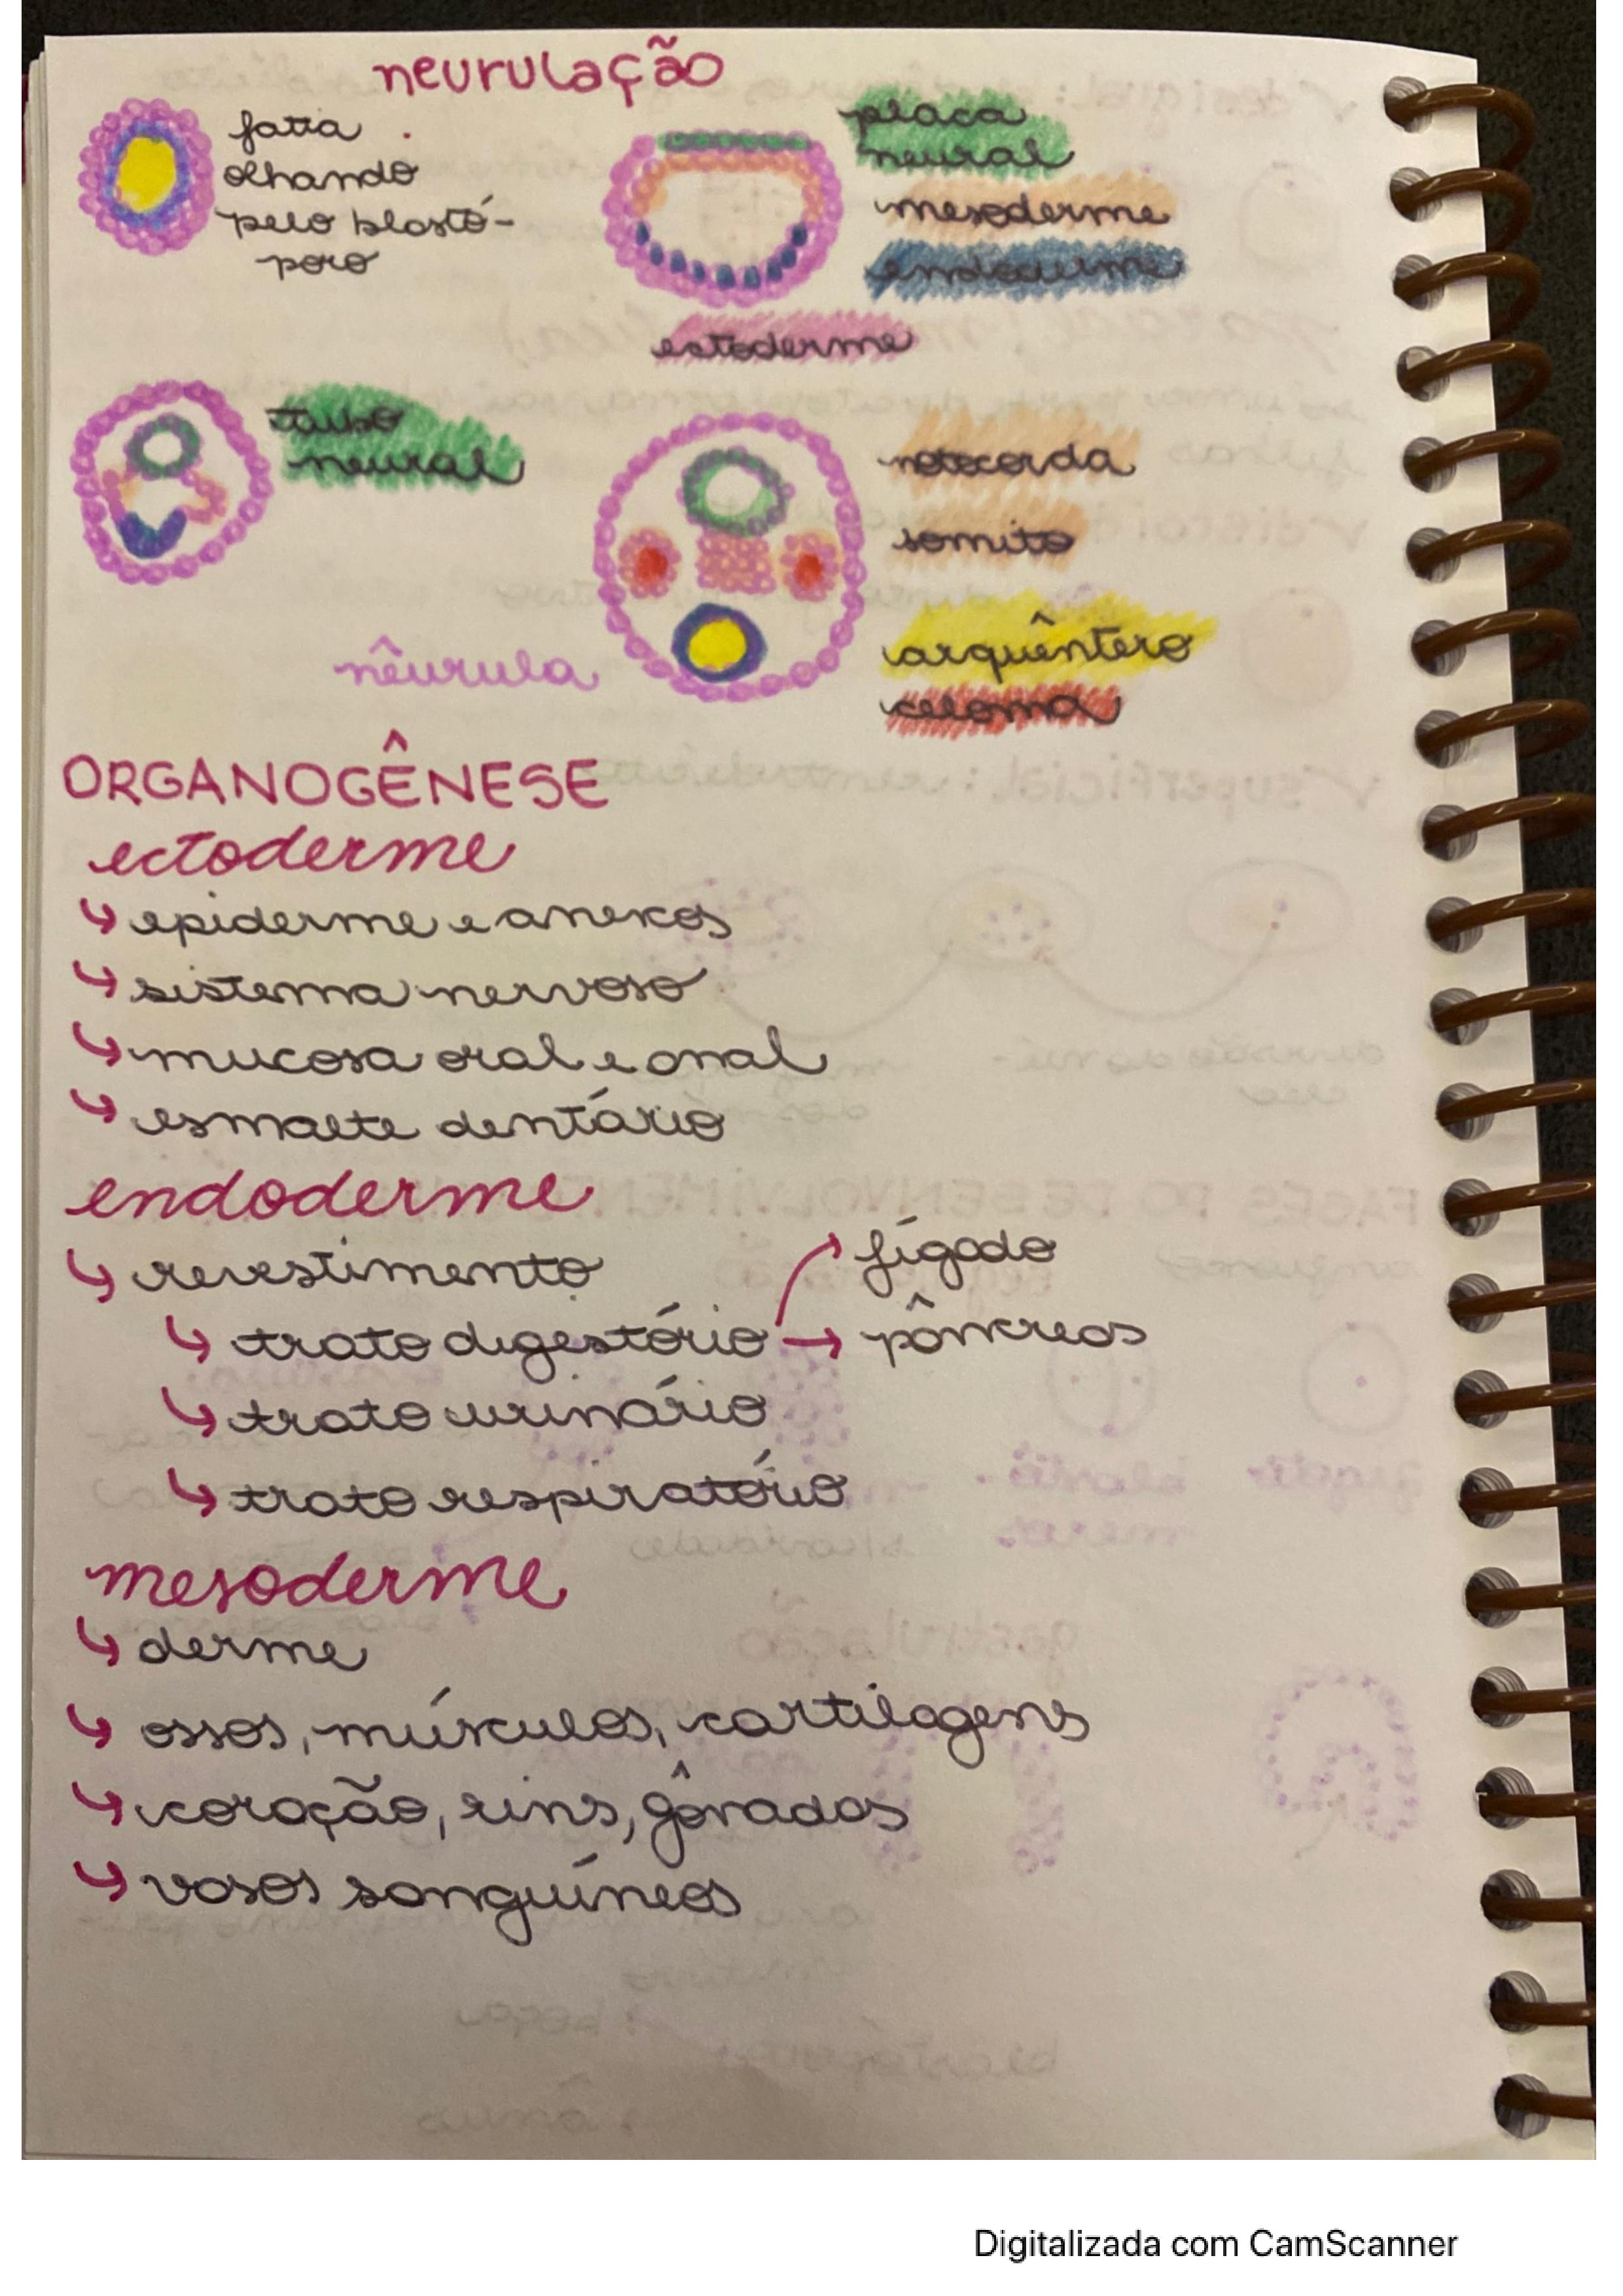 neurulação
fatia
olhando
pelo blastó-
poro
placa
neural
mesoderme
endoderme
ectoderme
tubo
neural
notocorda
somito
arquêntero
celoma
nêurula
ORGANOGÊNESE
ectoderme
↳ epiderme e anexos
↳ sistema nervoso
↳ mucosa oral e anal
↳ esmalte dentário
endoderme
↳ revestimento
↳ trato digestório → fígado
→ pâncreas
↳ trato urinário
↳ trato respiratório
mesoderme
↳ derme
↳ ossos, músculos, cartilagens
↳ coração, rins, gônadas
↳ vasos sanguíneos
Digitalizada com CamScanner